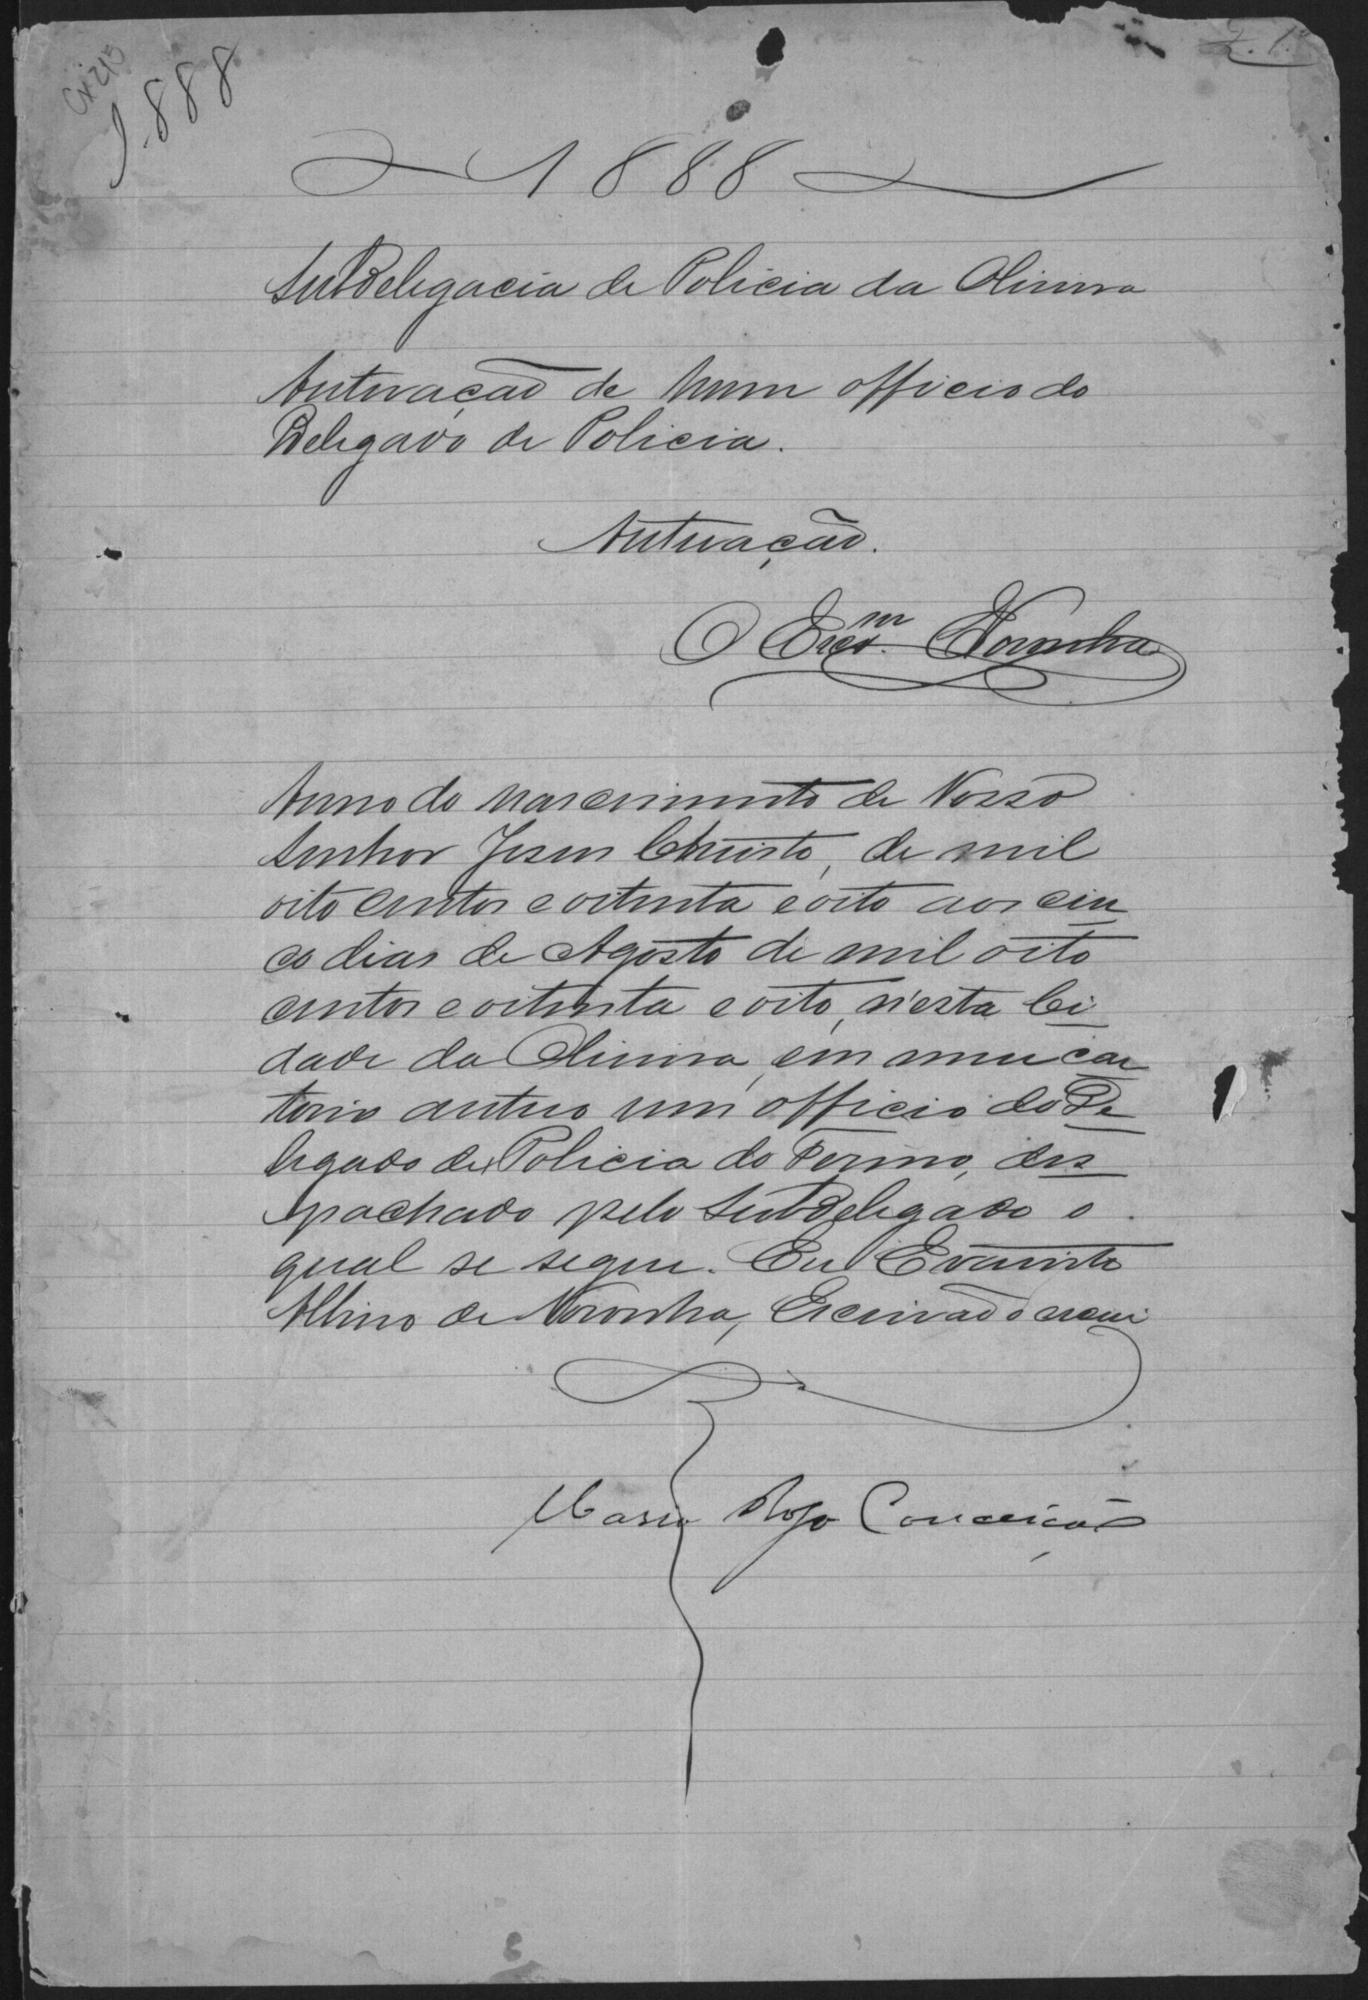 Cx 215
1.888
2. 1.
1888
SubDelegacia de Policia da Oliveira
Autuação de hum officio do
Delegado de Policia.
Autuação.
O Escm. Noronha
Anno do nascimento de Nosso
Senhor Jesus Christo, de mil
oito centos e oitenta e oito aos cin
co dias de Agosto de mil oito
centos e oitenta e oito, n'esta Ci
dade da Oliveira, em meu car
torio autuo um officio do De
legado de Policia do Termo, des
pachado pelo SubDelegado o
qual se segue. Eu Evaristo
Albino de Noronha, Escrivão o escrevi
Maria Roja Conceição